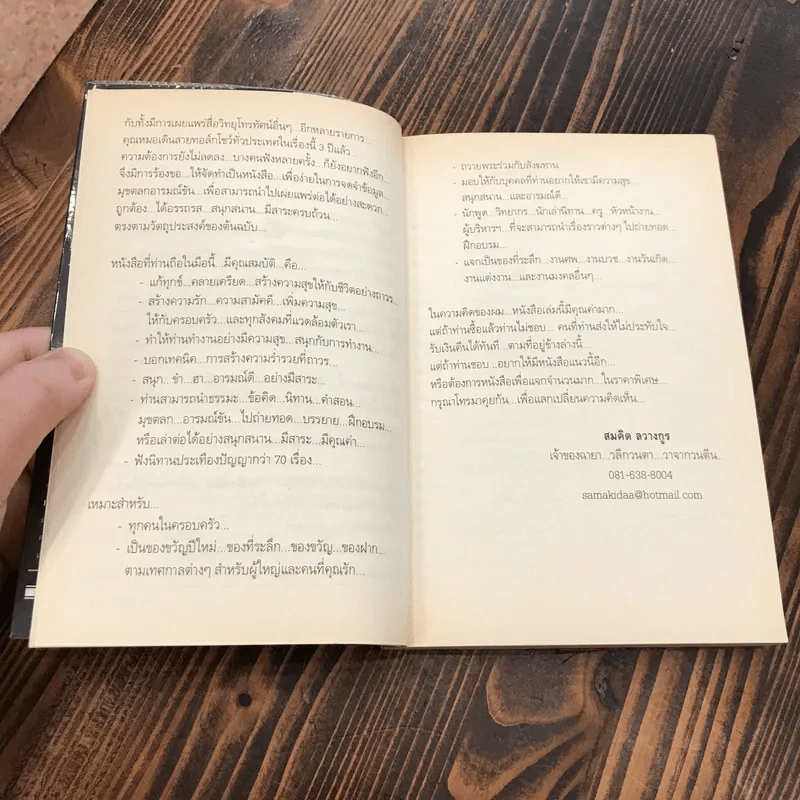 กับทั้งมีการเผยแพร่สื่อวิทยุโทรทัศน์อื่นๆ...อีกหลายรายการ...
คุณหมอเดินสายทอล์กโชว์ทั่วประเทศในเรื่องนี้ 3 ปีแล้ว...
ความต้องการยังไม่ลดลง...บางคนฟังหลายครั้ง...ก็ยังอยากฟังอีก
จึงมีการร้องขอ...ให้จัดทำเป็นหนังสือ...เพื่อง่ายในการจดจำข้อมูล
มุขตลกอารมณ์ขัน...เพื่อสามารถนำไปเผยแพร่ต่อได้อย่างสะดวก
ถูกต้อง...ได้อรรถรส...สนุกสนาน...มีสาระครบถ้วน...
ตรงตามวัตถุประสงค์ของต้นฉบับ...
หนังสือที่ท่านถือในมือนี้...มีคุณสมบัติ...คือ...
- แก้ทุกข์...คลายเครียด...สร้างความสุขให้กับชีวิตอย่างถาวร...
- สร้างความรัก...ความสามัคคี...เพิ่มความสุข...
ให้กับครอบครัว...และทุกสังคมที่แวดล้อมตัวเรา...
- ทำให้ท่านทำงานอย่างมีความสุข...สนุกกับการทำงาน...
- บอกเทคนิค...การสร้างความร่ำรวยที่ถาวร...
- สนุก...ขำ...ฮา...อารมณ์ดี...อย่างมีสาระ...
- ท่านสามารถนำธรรมะ...ข้อคิด...นิทาน...คำสอน...
มุขตลก...อารมณ์ขัน...ไปถ่ายทอด...บรรยาย...ฝึกอบรม...
หรือเล่าต่อได้อย่างสนุกสนาน...มีสาระ...มีคุณค่า...
- ฟังนิทานประเทืองปัญญากว่า 70 เรื่อง...
เหมาะสำหรับ...
- ทุกคนในครอบครัว...
- เป็นของขวัญปีใหม่...ของที่ระลึก...ของขวัญ...ของฝาก...
ตามเทศกาลต่างๆ สำหรับผู้ใหญ่และคนที่คุณรัก...
- ถวายพระร่วมกับสังฆทาน...
- มอบให้กับบุคคลที่ท่านอยากให้เขามีความสุข...
สนุกสนาน...และอารมณ์ดี...
- นักพูด...วิทยากร...นักเล่านิทาน...ครู...หัวหน้างาน...
ผู้บริหารฯ...ที่จะสามารถนำเรื่องราวต่างๆ ไปถ่ายทอด...
ฝึกอบรม...
- แจกเป็นของที่ระลึก...งานศพ...งานบวช...งานวันเกิด...
งานแต่งงาน...และงานมงคลอื่นๆ...
ในความคิดของผม...หนังสือเล่มนี้มีคุณค่ามาก...
แต่ถ้าท่านซื้อแล้วท่านไม่ชอบ...คนที่ท่านส่งให้ไม่ประทับใจ...
รับเงินคืนได้ทันที...ตามที่อยู่ข้างล่างนี้...
แต่ถ้าท่านชอบ...อยากให้มีหนังสือแนวนี้อีก...
หรือต้องการหนังสือเพื่อแจกจำนวนมาก...ในราคาพิเศษ...
กรุณาโทรมาคุยกัน...เพื่อแลกเปลี่ยนความคิดเห็น...
สมคิด ลวางกูร
เจ้าของฉายา...วลีกวนตา...วาจากวนตีน...
081-638-8004
samakidaa@hotmail.com